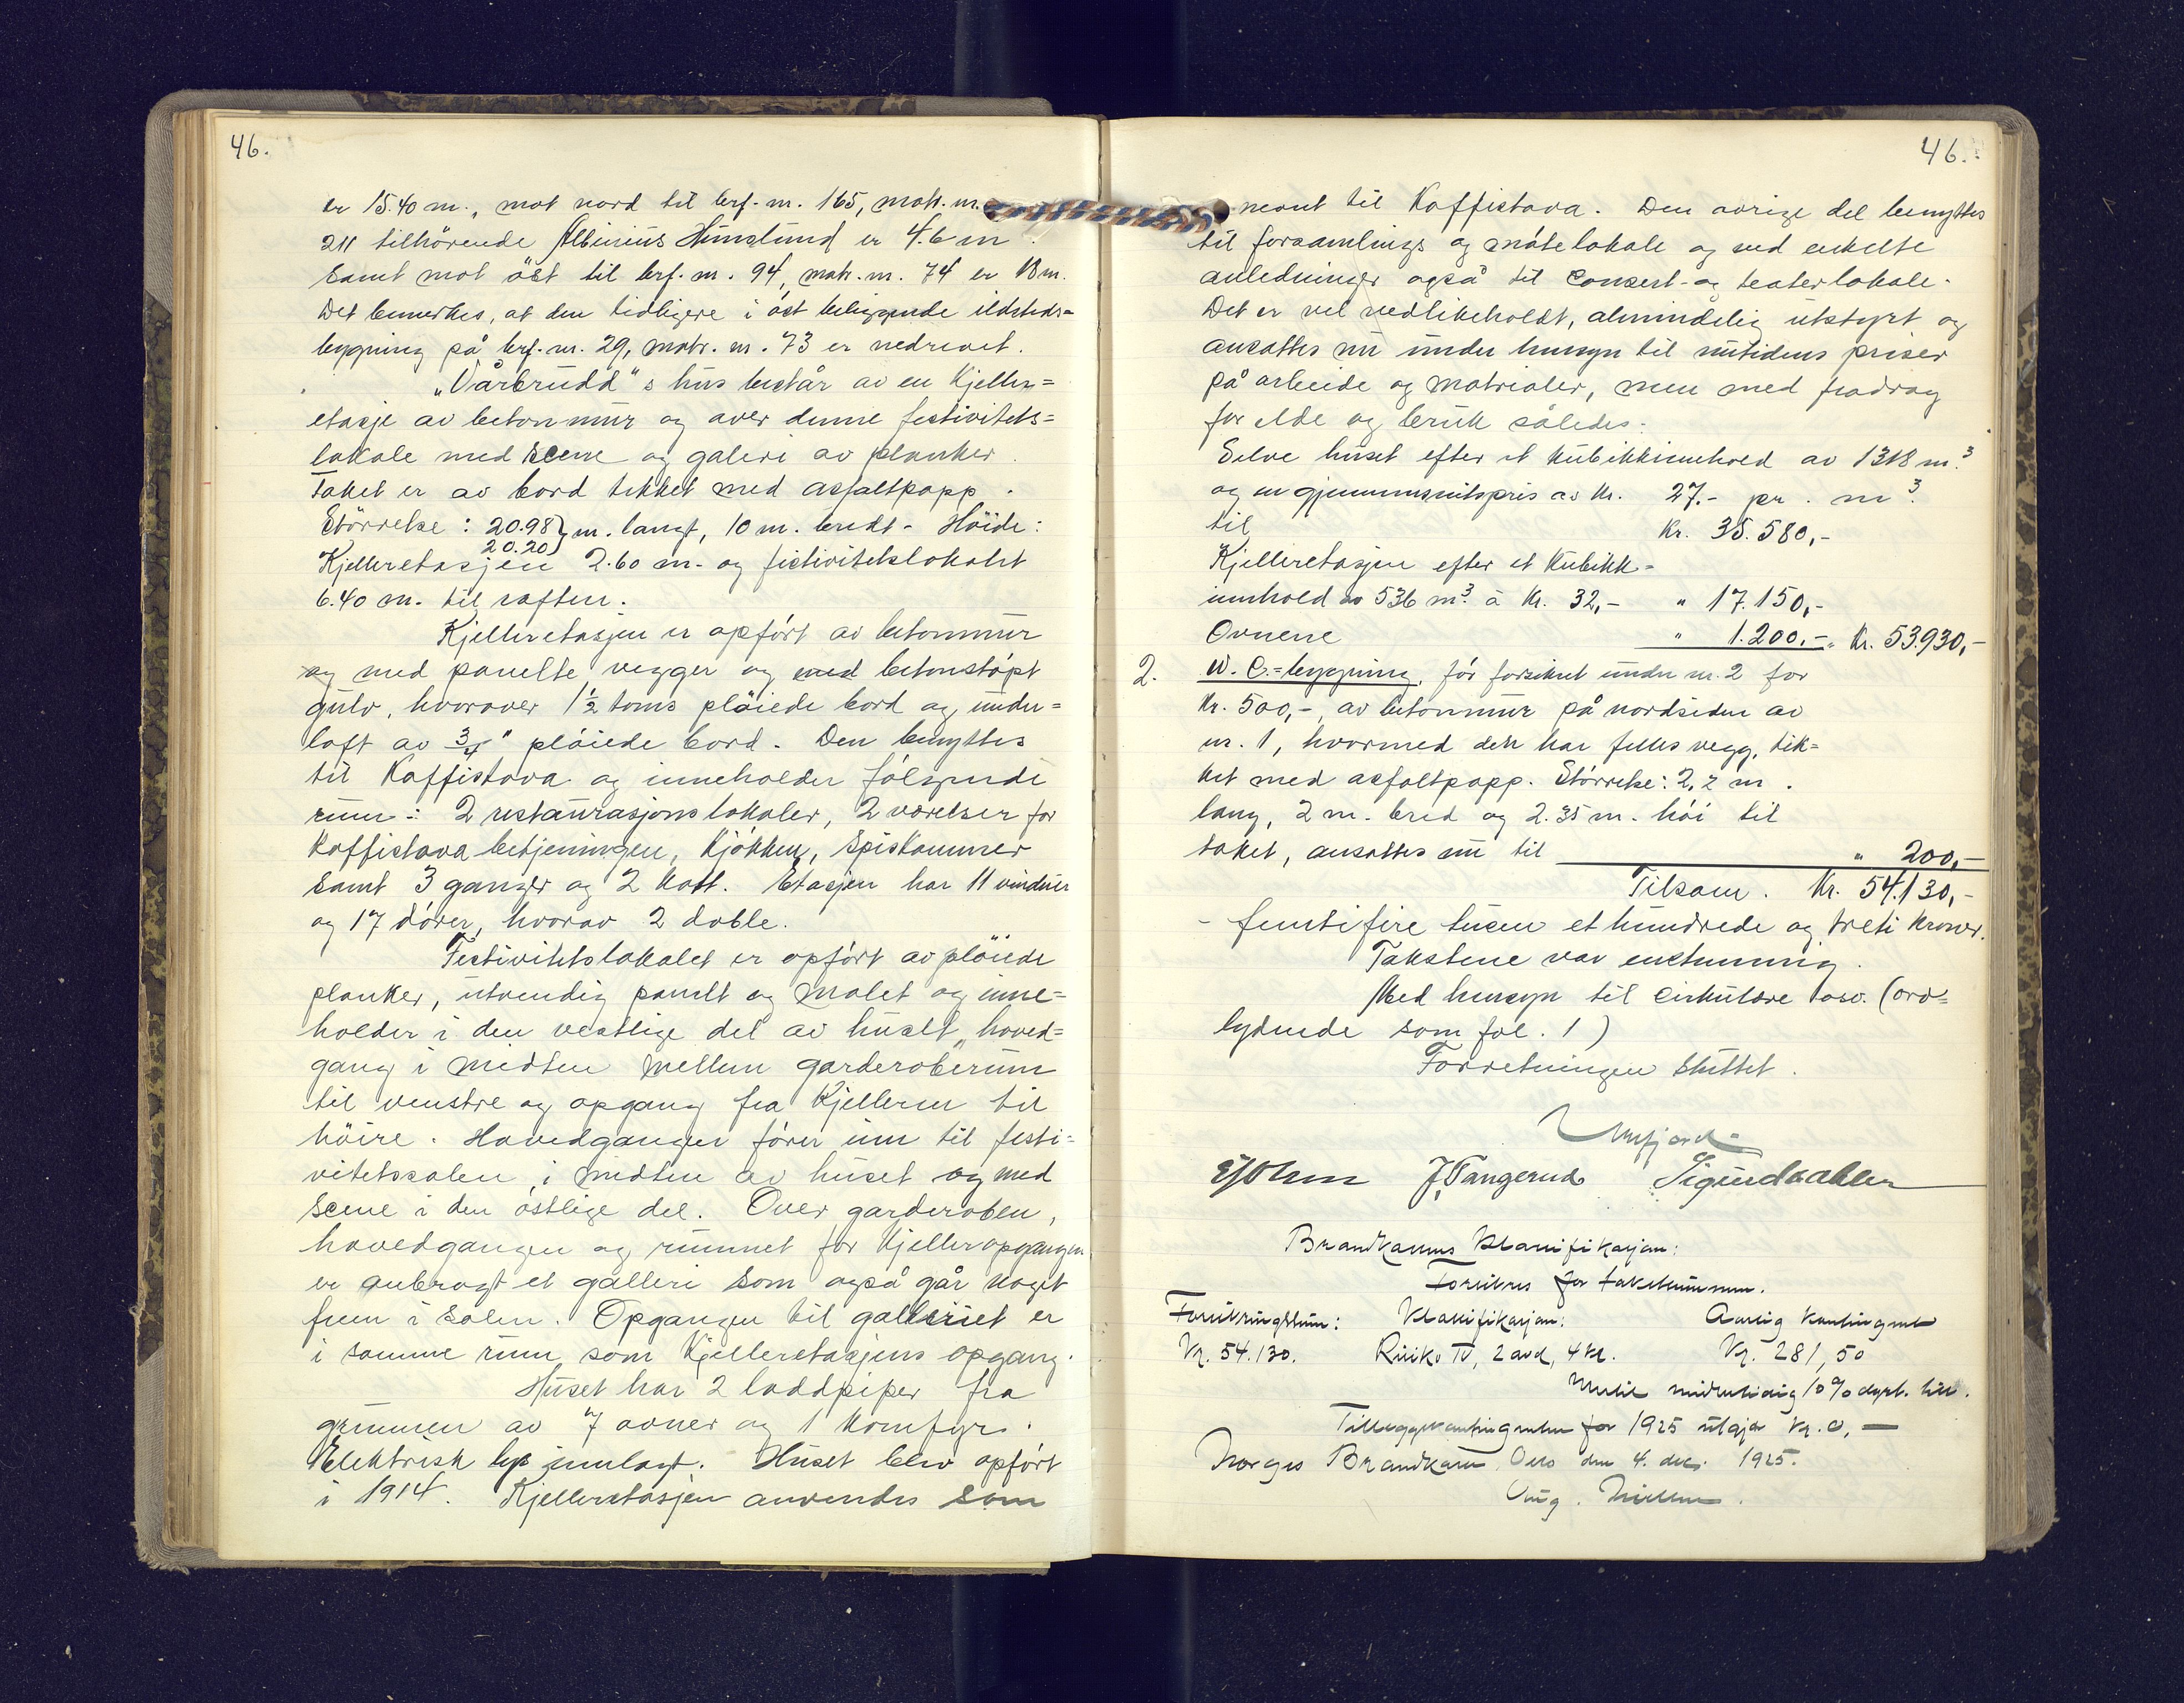 46.
er 15.40 m., mot nord til brf. nr. 165, matr. nr.
211 tilhörende Albinius Hunslund er 4.6 m.
samt mot öst til brf. nr. 94, matr. nr. 74 er 18 m.
Det bemerkes, at den tidligere i öst beliggende ildsteds=
bygning på brf. nr. 29, matr. nr. 73 er nedrevet.
„Vårbrudd"s hus består av en kjeller=
etasje av betonmur og over denne festivitets=
lokale med scene og galeri av planker.
Taket er av bord tekket med asfaltpapp.
Störrelse: 20.98 } m. langt, 10 m. bredt. Höide:
20.20
Kjelleretasjen 2.60 m. og festivitetslokalet
6.40 m. til raften.
Kjelleretasjen er opfört av betonmur
og med panelte vegger og med betonstöpt
gulv, hvorover 1½ toms plöiede bord og under=
loft av 3/4" plöiede bord. Den benyttes
til Kaffistova og inneholder fölgende
rum: 2 restaurasjonslokaler, 2 værelser for
kaffistova betjeningen, kjökken, spiskammer
samt 3 ganger og 2 kott. Etasjen har 11 vinduer
og 17 dörer, hvorav 2 doble.
Festivitetslokalet er opfört av plöiede
planker, utvendig panelt og malet og inne=
holder i den vestlige del av huset, hoved=
gang i midten mellem garderoberum
til venstre og opgang fra kjelleren til
höire. Hovedgangen förer inn til festi=
vitetssalen i midten av huset og med
scene i den östlige del. Over garderoben,
hovedgangen og rummet for kjelleropgangen
er anbragt et galleri som også går noget
frem i salen. Opgangen til galleriet er
i samme rum som kjelleretasjens opgang.
Huset har 2 loddpiper fra
grunnen av 7 ovner og 1 komfyr.
Elektrisk lys innlagt. Huset blev opfört
i 1914. Kjelleretasjen anvendes som
46.
nevnt til Kaffistova. Den övrige del benyttes
til forsamlings og mötelokale og ved enkelte
anledninger også til concert- og teaterlokale.
Det er vel vedlikeholdt, almindelig utstyrt og
ansettes nu under hensyn til nutidens priser
på arbeide og matrialer, men med fradrag
for elde og bruk således:
Selve huset efter et kubikkinnhold av 1318 m.³
og en gjennemsnitspris av kr. 27.- pr. m³.
til kr. 35.580,-
Kjelleretasjen efter et kubikk-
innhold av 536 m³. à kr. 32,- " 17.150,-
Ovnene " 1.200,- kr. 53.930,-
2. W. C.=bygning, för forsikret under nr. 2 for
kr. 500,-, av betonmur på nordsiden av
nr. 1, hvormed den har felles vegg, tek=
ket med asfaltpapp. Störrelse: 2,2 m.
lang, 2 m. bred og 2.35 m. höi til
taket, ansettes nu til " 200,-
Tilsam. Kr. 54.130,-
- femtifire tusen et hundrede og treti kroner.
Takstene var enstemmig.
Med hensyn til cirkulære osv. (ord=
lydende som fol. 1)
Forretningen sluttet.
J. Tangerud
Brandkassens klassifikasjon:
Forsikres for takstsummen.
Forsikringssum: Klassifikasjon: Aarlig kontingent
Kr. 54.130. Risiko IV, 2 avd, 4 kl. Kr. 281,50
Inntil midlertidig 10% dyrt. till.
Tilleggskontingenten for 1925 utgjör kr. 0,-
Norges Brandkasse, Oslo den 4. des. 1925.